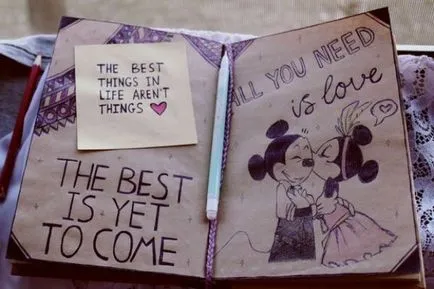 THE BEST
THINGS IN
LIFE AREN'T
THINGS
THE BEST
IS YET
TO COME
ALL YOU NEED
is love